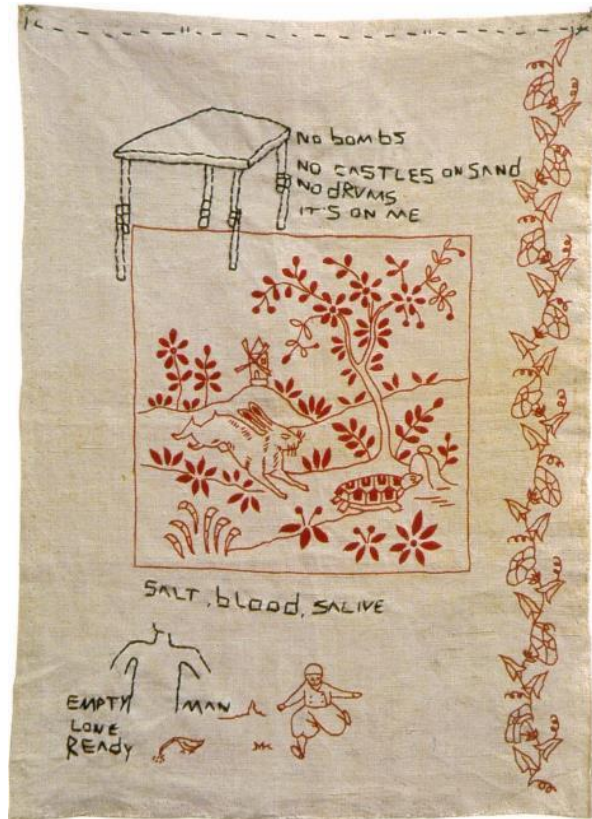 No bombS
NO CASTLES ON SAND
NO dRUMS
IT'S ON ME
SALT, blood, SALIVE
EMPTY MAN
LONE
READY